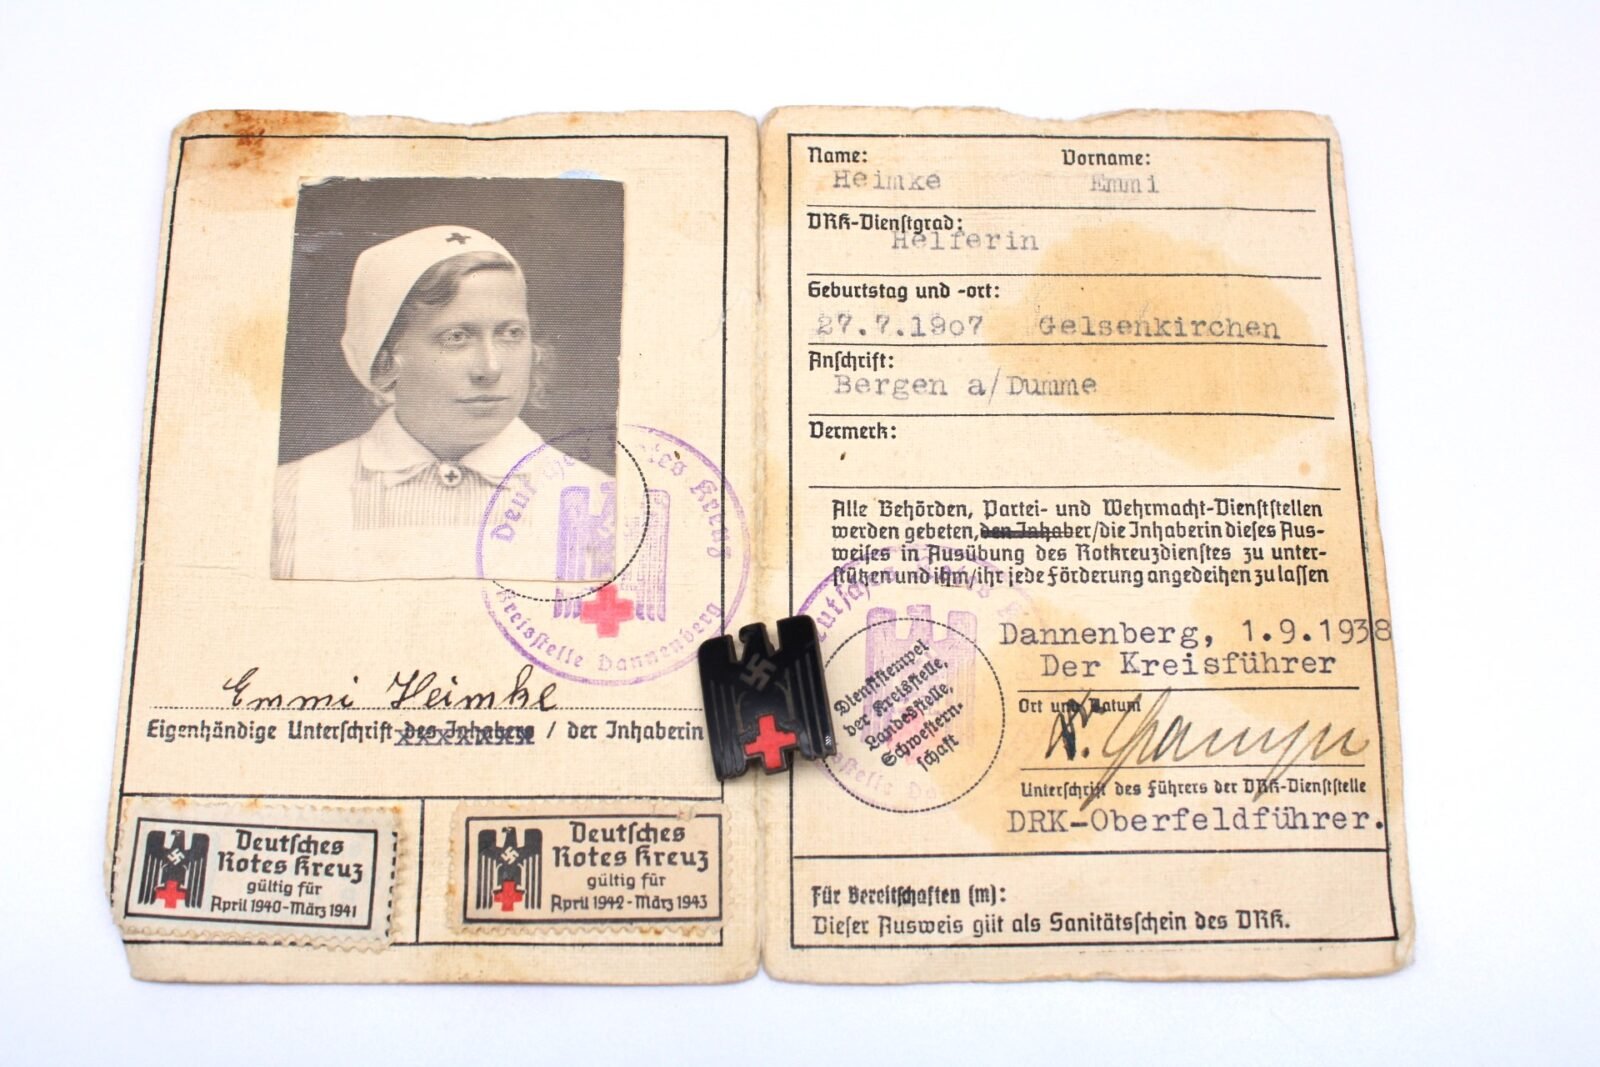 Deutsches Rotes Kreuz
Kreisstelle Dannenberg
Emmi Heimke
Eigenhändige Unterschrift des Inhabers / der Inhaberin
Deutsches
Rotes Kreuz
gültig für
April 1940-März 1941
Deutsches
Rotes Kreuz
gültig für
April 1942-März 1943
Name: Vorname:
Heimke Emmi
DRK-Dienstgrad:
Helferin
Geburtstag und -ort:
27.7.1907 Gelsenkirchen
Anschrift:
Bergen a/Dumme
Vermerk:
Alle Behörden, Partei- und Wehrmacht-Dienststellen
werden gebeten, den Inhaber/die Inhaberin dieses Aus-
weises in Ausübung des Rotkreuzdienstes zu unter-
stützen und ihm/ihr jede Förderung angedeihen zu lassen
Dienststempel
der Kreisstelle,
Landesstelle,
Schwestern-
schaft
Dannenberg, 1.9.1938
Der Kreisführer
Ort und Datum
Unterschrift des Führers der DRK-Dienststelle
DRK-Oberfeldführer.
Für Bereitschaften (m):
Dieser Ausweis gilt als Sanitätsschein des DRK.